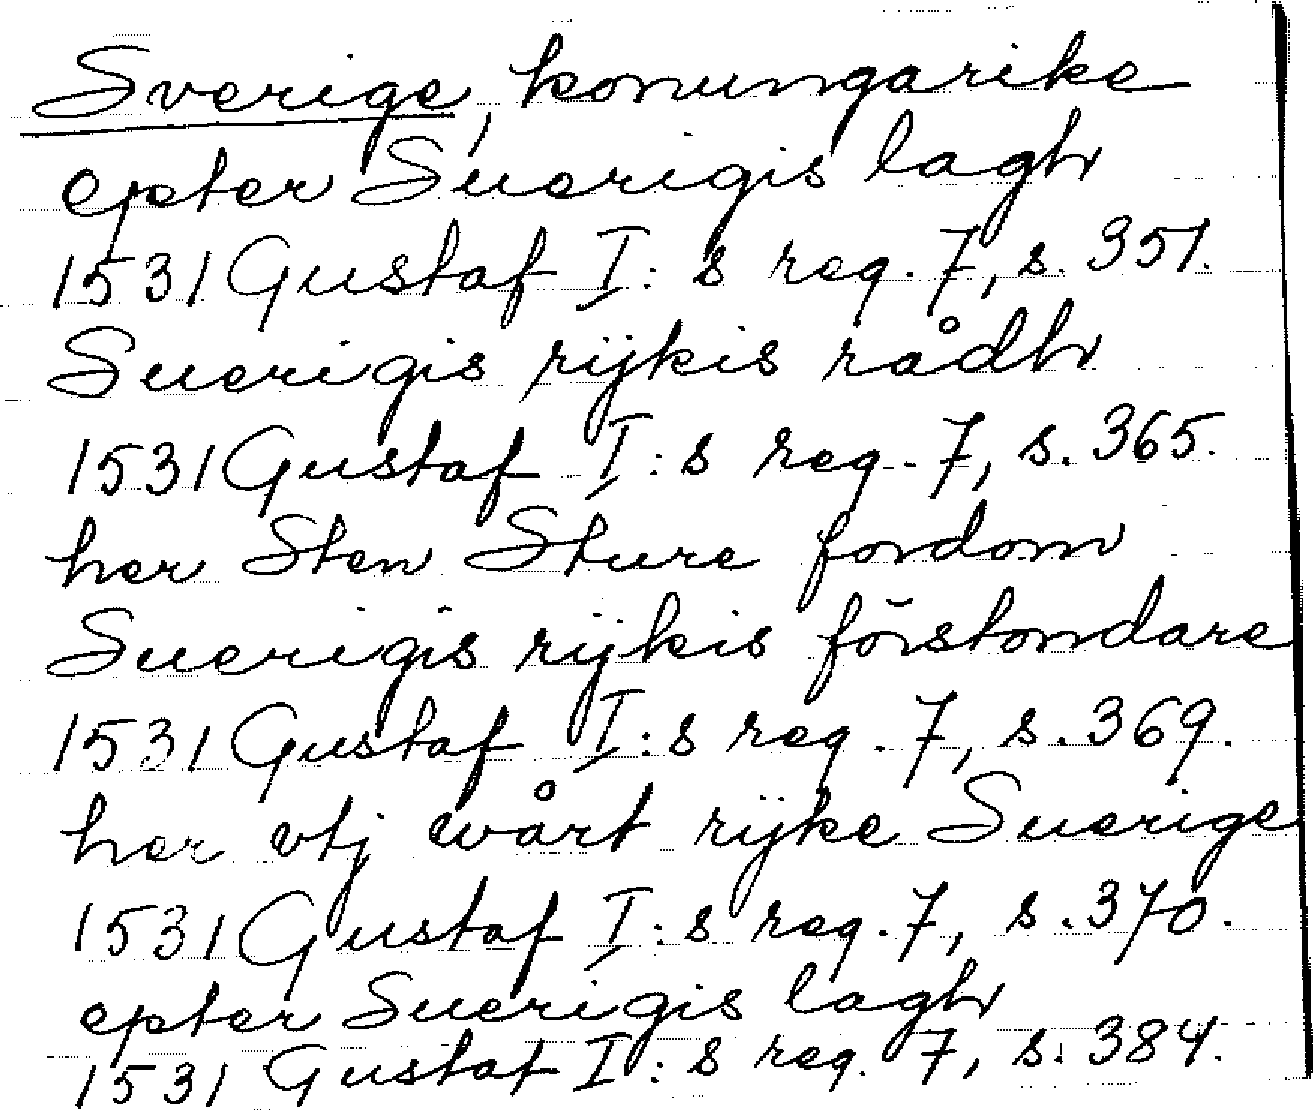 Sverige, konungarike
epter Suerigis lagh
1531 Gustaf I:s reg. 7, s. 351.
Suerigis rijkis rådh
1531 Gustaf I:s reg. 7, s. 365.
her Sten Sture fordom
Suerigis rijkis förstondare
1531 Gustaf I:s reg. 7, s. 369.
her vtj wårt rijke Suerige
1531 Gustaf I:s reg. 7, s. 370.
epter Suerigis lagh
1531 Gustaf I:s reg. 7, s. 384.